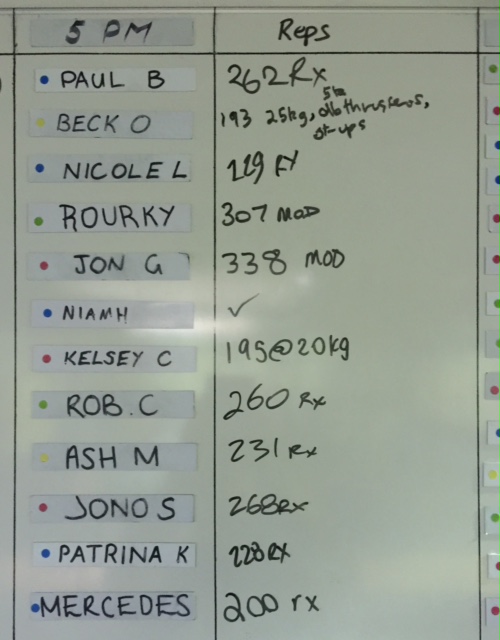 5 PM Reps
PAUL B 262 Rx
BECK O 193 25kg, thrusters,
NICOLE L
ROURKY 307 MOD
JON G 338 MOD
NIAMH ✓
KELSEY C 195@20kg
ROB.C 260 Rx
ASH M 231 Rx
JONO S 268 Rx
PATRINA K 228 RX
MERCEDES 200 rx